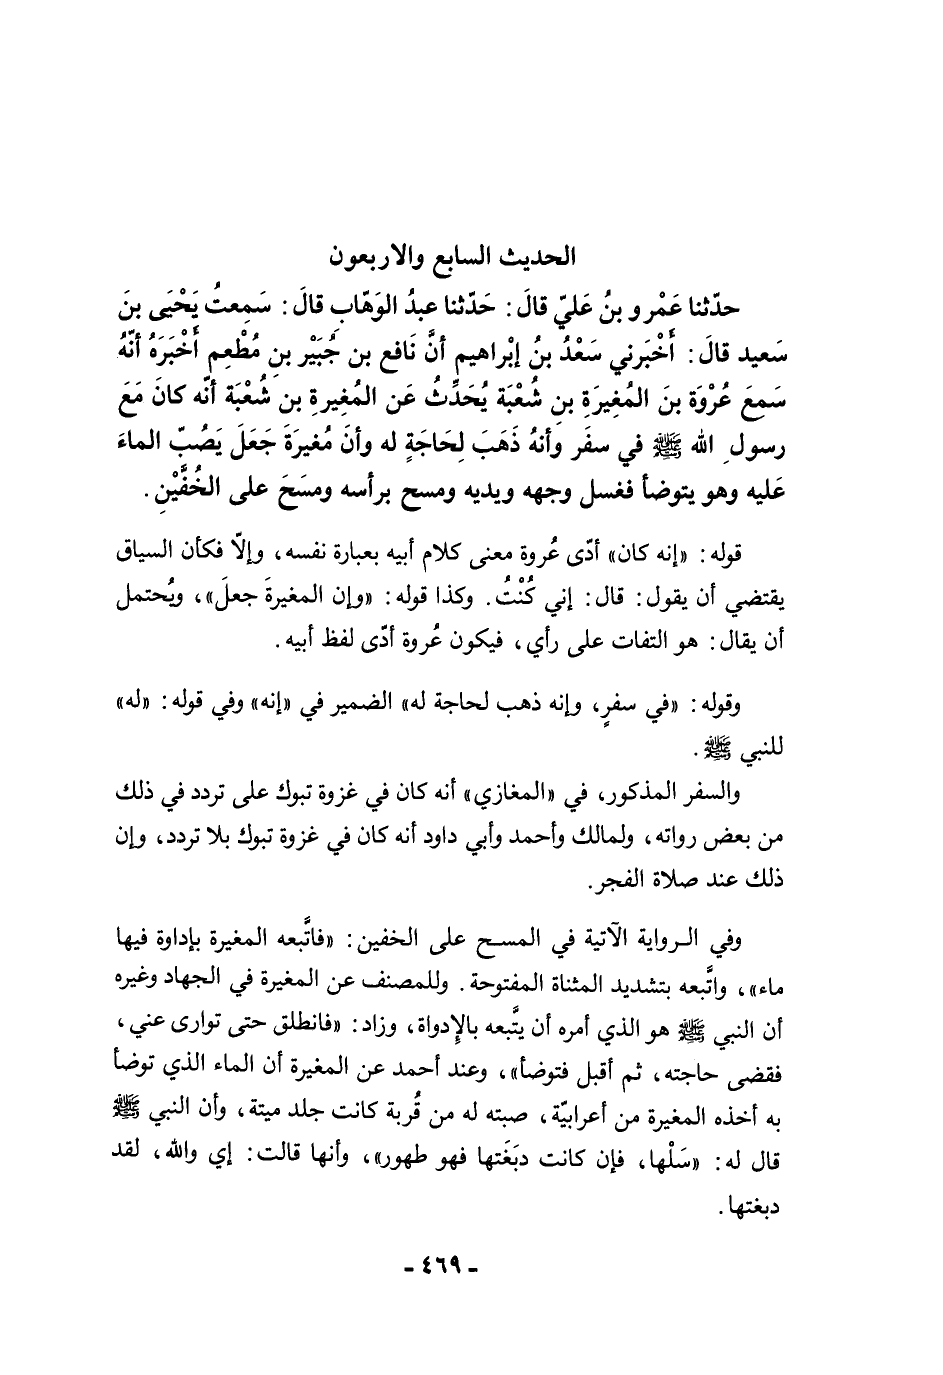 الحديث السابع والاربعون
حدّثنا عَمْرو بنُ عَليّ قالَ: حَدّثنا عبدُ الوَهّابِ قالَ: سَمِعتُ يَحْيَى بنَ
سَعيد قالَ: أَخْبَرني سَعْدُ بنُ إبْراهيم أنَّ نَافع بن جُبَيْر بنِ مُطْعِم أَخْبَرَهُ أنّهُ
سَمِعَ عُرْوَة بنَ المُغِيرَةِ بنِ شُعْبَة يُحَدِّثُ عَن المُغيرةِ بن شُعْبَة أنّه كانَ مَعَ
رسولِ الله ﷺ في سفَر وأنهُ ذَهَبَ لِحَاجَةٍ له وأنَ مُغيرَةَ جَعَلَ يَصُبّ الماءَ
عَليه وهو يتوضأ فغسل وجهه ويديه ومسح برأسه ومسَحَ على الخُفَّيْنِ.
قوله: «إنه كان» أدّى عُروة معنى كلام أبيه بعبارة نفسه، وإلّا فكأن السياق
يقتضي أن يقول: قال: إني كُنْتُ. وكذا قوله: «وإن المغيرةَ جعلَ»، ويُحتمل
أن يقال: هو التفات على رأي، فيكون عُروة أدّى لفظ أبيه.
وقوله: «في سفرٍ، وإنه ذهب لحاجة له» الضمير في «إنه» وفي قوله: «له»
للنبي ﷺ.
والسفر المذكور، في «المغازي» أنه كان في غزوة تبوك على تردد في ذلك
من بعض رواته، ولمالك وأحمد وأبي داود أنه كان في غزوة تبوك بلا تردد، وإن
ذلك عند صلاة الفجر.
وفي الرواية الآتية في المسح على الخفين: «فاتَّبعه المغيرة بإداوة فيها
ماء»، واتَّبعه بتشديد المثناة المفتوحة. وللمصنف عن المغيرة في الجهاد وغيره
أن النبي ﷺ هو الذي أمره أن يتَّبعه بالإِدواة، وزاد: «فانطلق حتى توارى عني،
فقضى حاجته، ثم أقبل فتوضأ»، وعند أحمد عن المغيرة أن الماء الذي توضأ
به أخذه المغيرة من أعرابيّة، صبته له من قُربة كانت جلد ميتة، وأن النبي ﷺ
قال له: «سَلْها، فإن كانت دبَغَتها فهو طهور»، وأنها قالت: إي والله، لقد
دبغتها.
- ٤٦٩ -